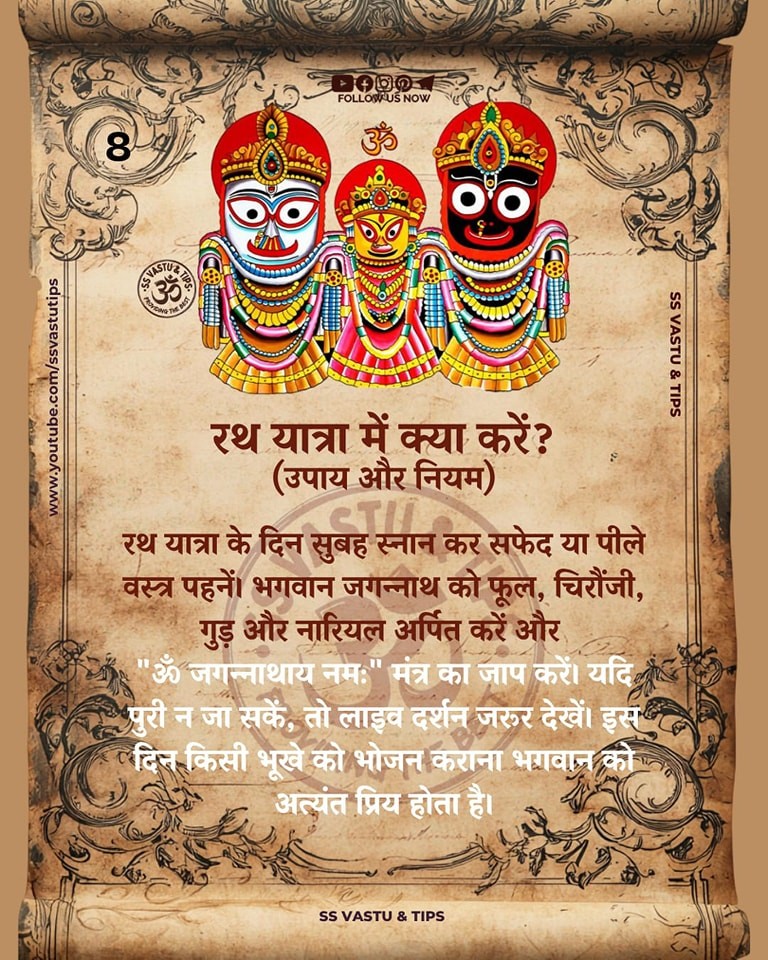 FOLLOW US NOW
8
ॐ
SS VASTU & TIPS
ॐ
PROVIDING THE BEST
www.youtube.com/ssvastutips
SS VASTU & TIPS
रथ यात्रा में क्या करें?
(उपाय और नियम)
रथ यात्रा के दिन सुबह स्नान कर सफेद या पीले
वस्त्र पहनें। भगवान जगन्नाथ को फूल, चिरौंजी,
गुड़ और नारियल अर्पित करें और
"ॐ जगन्नाथाय नमः" मंत्र का जाप करें। यदि
पुरी न जा सकें, तो लाइव दर्शन जरूर देखें। इस
दिन किसी भूखे को भोजन कराना भगवान को
अत्यंत प्रिय होता है।
SS VASTU & TIPS